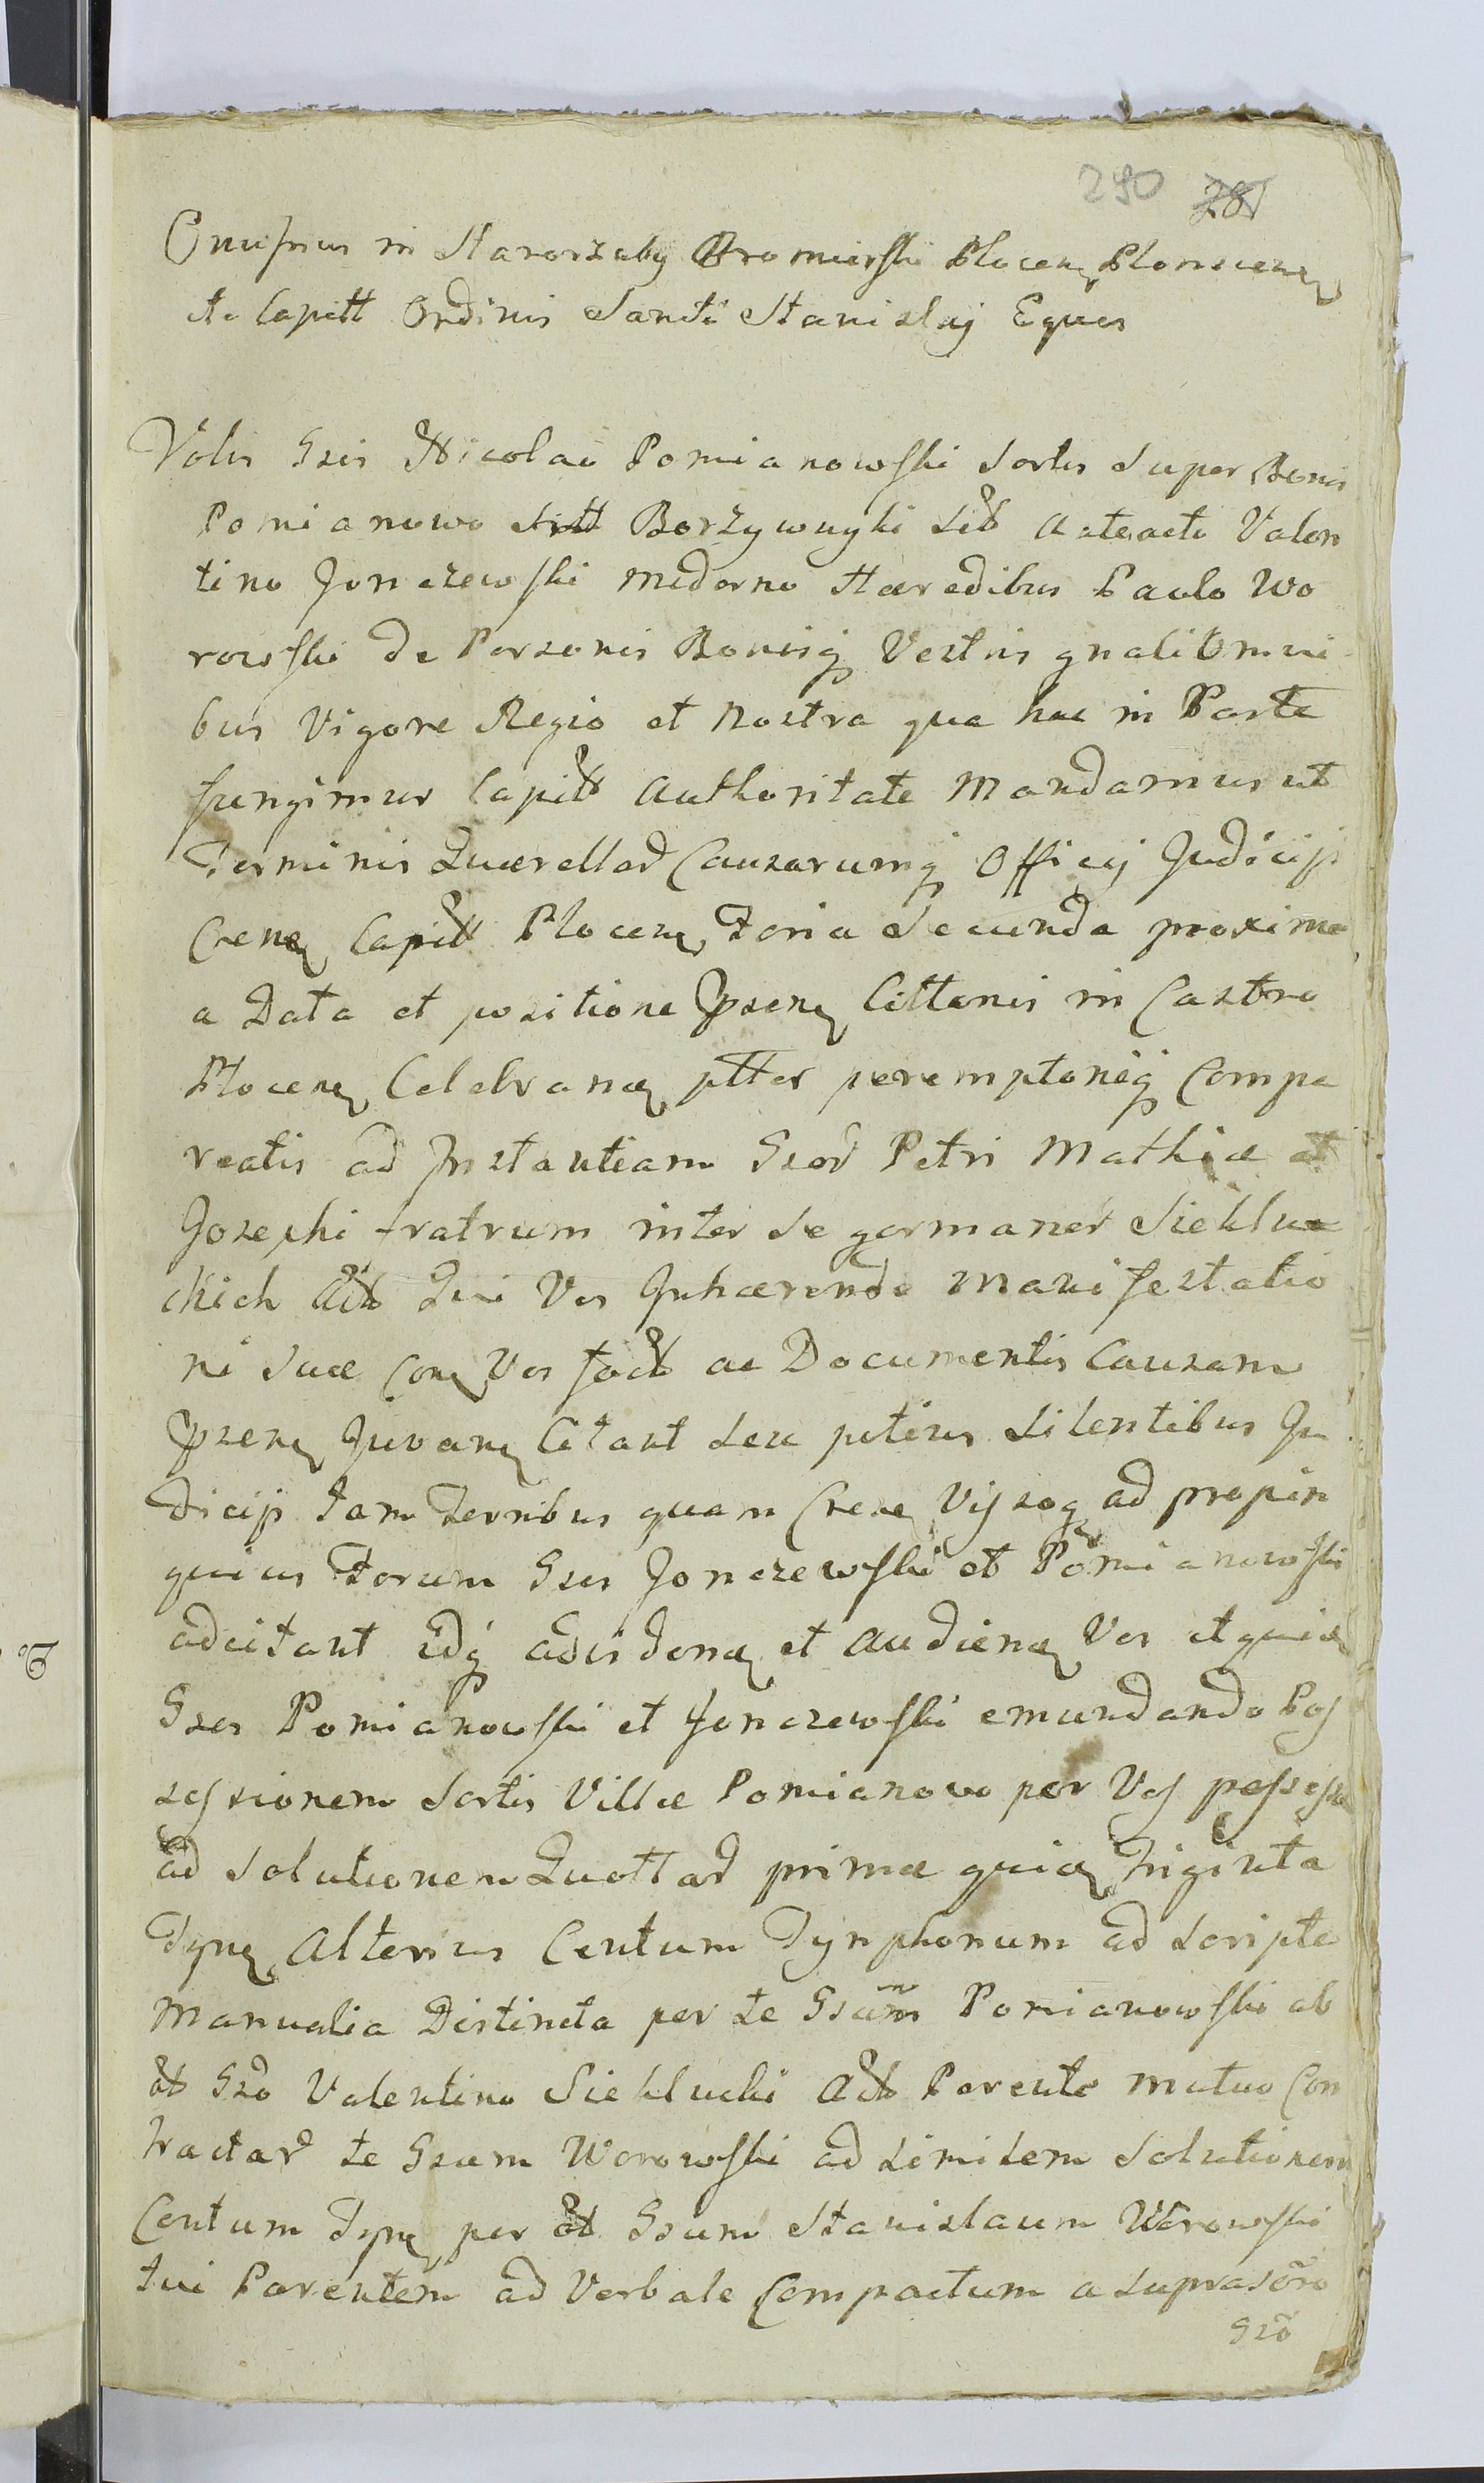 290 281
Onufrius in Starorzeby Bromierski Plocen Plonscen
etc Capitt Ordinis Sancti Stanislaj Eques
Vobis Gsis Nicolao Pomianowski Sortis Super Bonis
Pomianowo Sitt Borzywuyki Lib Anteacto Valen
tino Jonczewski moderno Hæredibus Paulo Wo
rowski de Personis Bonisq Vestris gnalit Omni
bus Vigore Regio et Nostra qua hac in Parte
fungimur Capitt Authoritate Mandamus ut
Terminis Quærellar Causarumq Officij Judicij
Cren Capitt Plocen Feria Secunda proxima
a Data et positione Ppsen Cittonis in Castro
Plocen Celebran ptter peremptorieq Compa
reatis ad Instantiam Gsor Petri Mathiæ et
Josephi fratrum inter Se germanor Sieklu
ckich Act Qui Vos Inhærendo Manifestatio
ni Suæ Con Vos fact ac Documentis Causam
Ppsen Juvan Citant Seu potius Silentibus Ju
dicijs tam Terribus quam Cren Vijsoq ad propin
quius Forum Gsos Jonczewski et Pomianowski
adcitant idq ad Vos et quia
Gsos Pomianowski et Jonczewski emundando Pos
sessionem Sortis Villæ Pomianowo per Vos possessæ
ad Solutionem Quottar primæ quin Triginta
Tyn Alterius Centum Tynphonum ad Scripta
Manualia Distincta per te Gsum Pomianowski ab
ol Gso Valentino Sieklucki Act Parente mutuo Con
tractar te Gsum Worowski ad Similem Solutionem
Centum Tyn per ol Gsum Stanislaum Worowski
tui Parentem ad Verbale Compactum a Suprascro
Gso